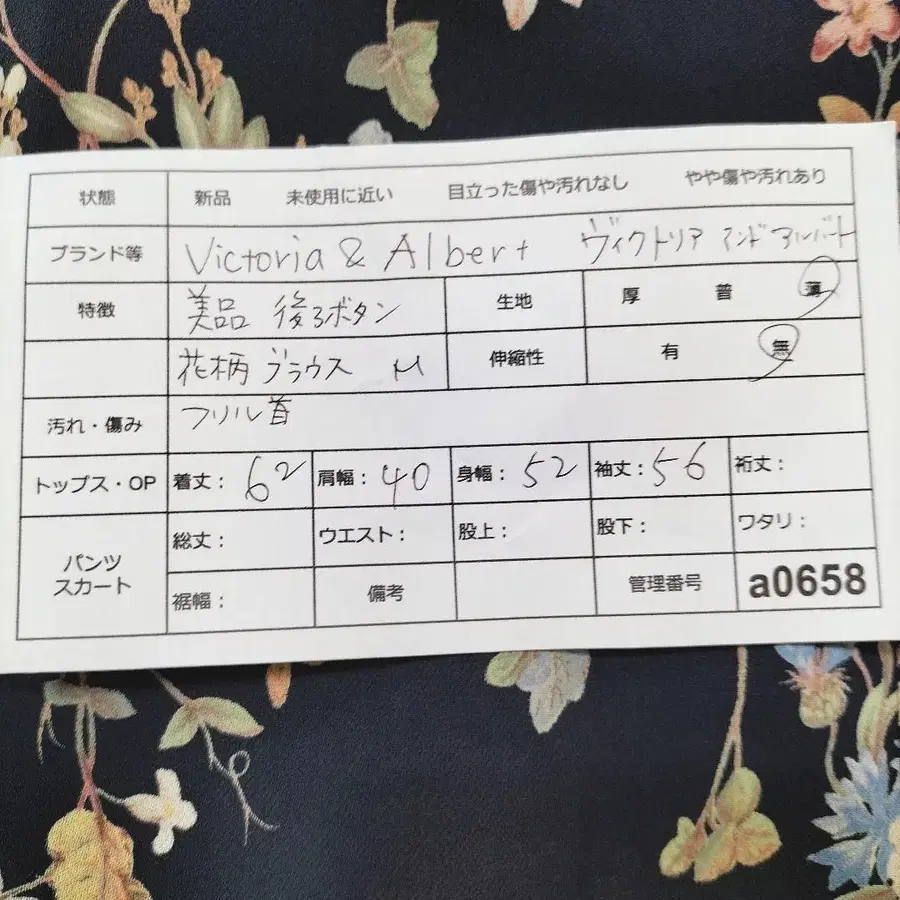 状態 新品 未使用に近い 目立った傷や汚れなし やや傷や汚れあり
ブランド等 Victoria & Albert ヴィクトリア アンド アルバート
特徴 美品 後ろボタン 生地 厚 普 薄
花柄 ブラウス M 伸縮性 有 無
汚れ・傷み フリル首
トップス・OP 着丈：62 肩幅：40 身幅：52 袖丈：56 裄丈：
パンツ スカート 総丈： ウエスト： 股上： 股下： ワタリ：
裾幅： 備考 管理番号 a0658